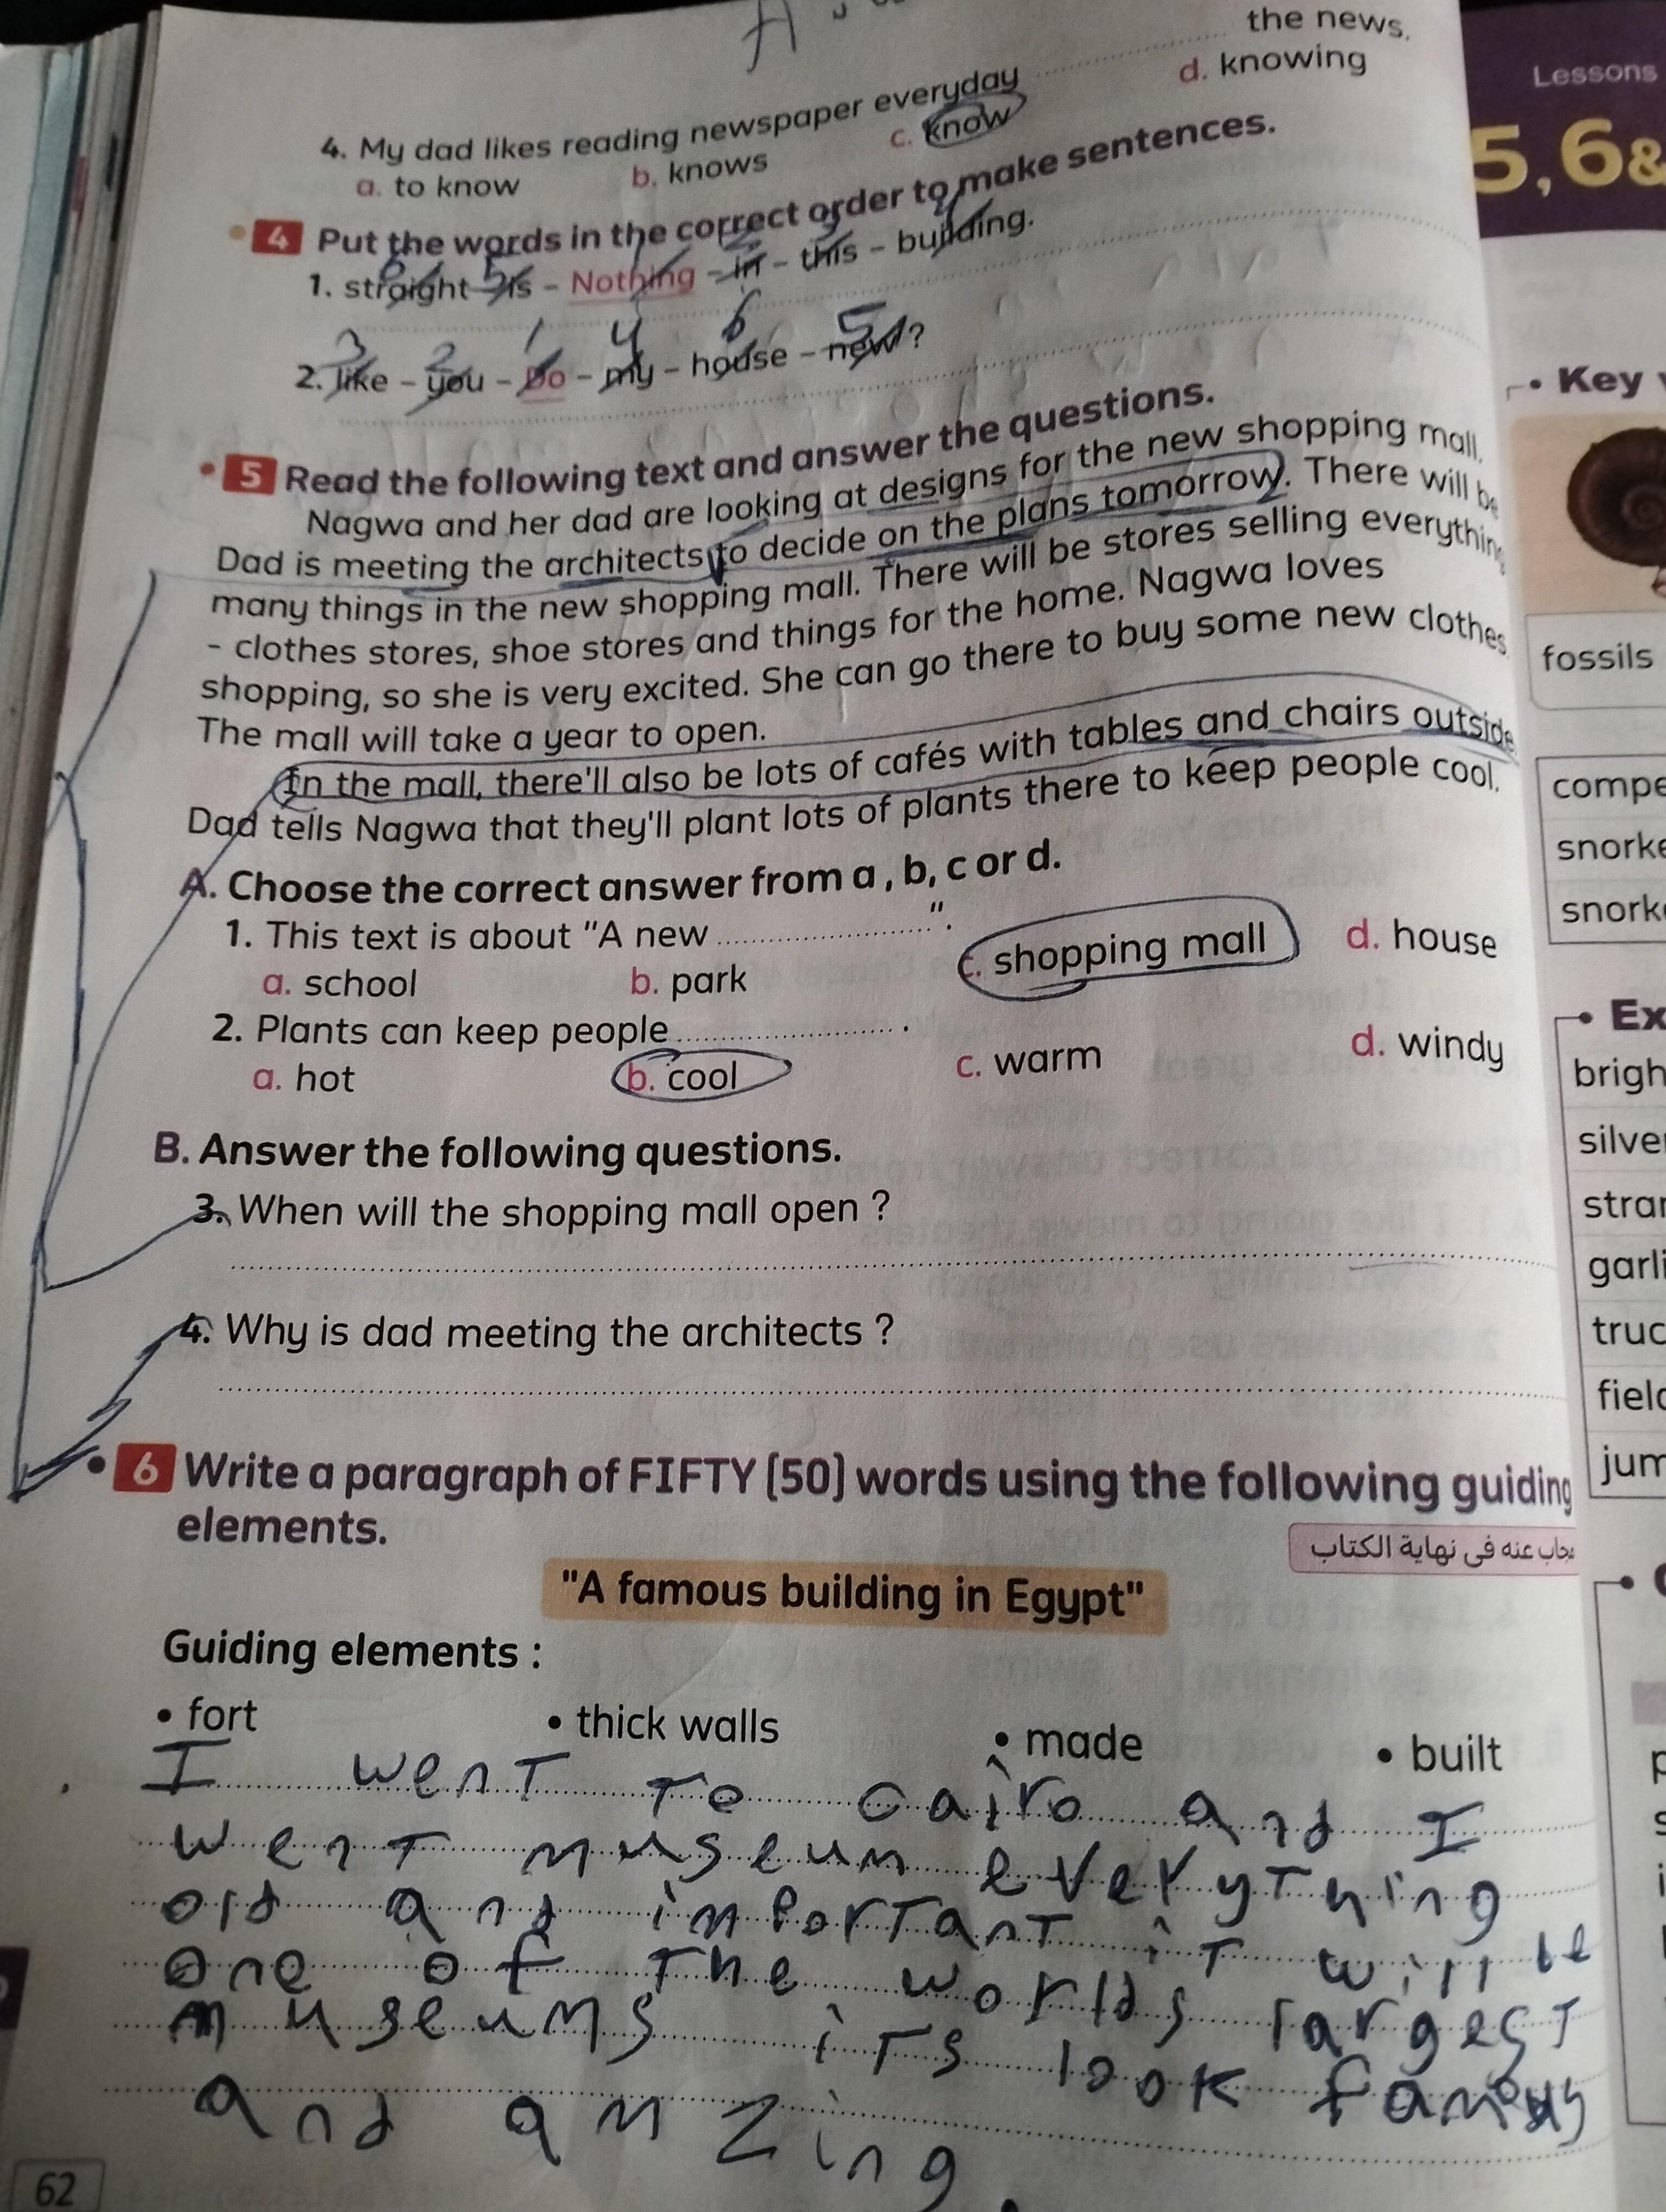 the news.
4. My dad likes reading newspaper everyday
a. to know b. knows c. know d. knowing
4 Put the words in the correct order to make sentences.
6 5 1 2 3 4
1. straight - is - Nothing - in - this - building.
3 2 1 4 6 5
2. like - you - Do - my - house - new ?
5 Read the following text and answer the questions.
Nagwa and her dad are looking at designs for the new shopping mall.
Dad is meeting the architects to decide on the plans tomorrow. There will be
many things in the new shopping mall. There will be stores selling everything
- clothes stores, shoe stores and things for the home. Nagwa loves
shopping, so she is very excited. She can go there to buy some new clothes
The mall will take a year to open.
In the mall, there'll also be lots of cafés with tables and chairs outside
Dad tells Nagwa that they'll plant lots of plants there to keep people cool.
A. Choose the correct answer from a , b, c or d.
1. This text is about "A new ".
a. school b. park c. shopping mall d. house
2. Plants can keep people .
a. hot b. cool c. warm d. windy
B. Answer the following questions.
3. When will the shopping mall open ?
4. Why is dad meeting the architects ?
6 Write a paragraph of FIFTY (50) words using the following guiding
elements.
مجاب عنه فى نهاية الكتاب
"A famous building in Egypt"
Guiding elements :
• fort • thick walls • made • built
I went to cairo and I
went museum everything
old and important it will be
one of the worlds largest
museums its look famous
and amzing.
62
Lessons
5,6&
• Key
fossils
compe
snorke
snork
• Ex
brigh
silve
stra
garli
truc
field
jum